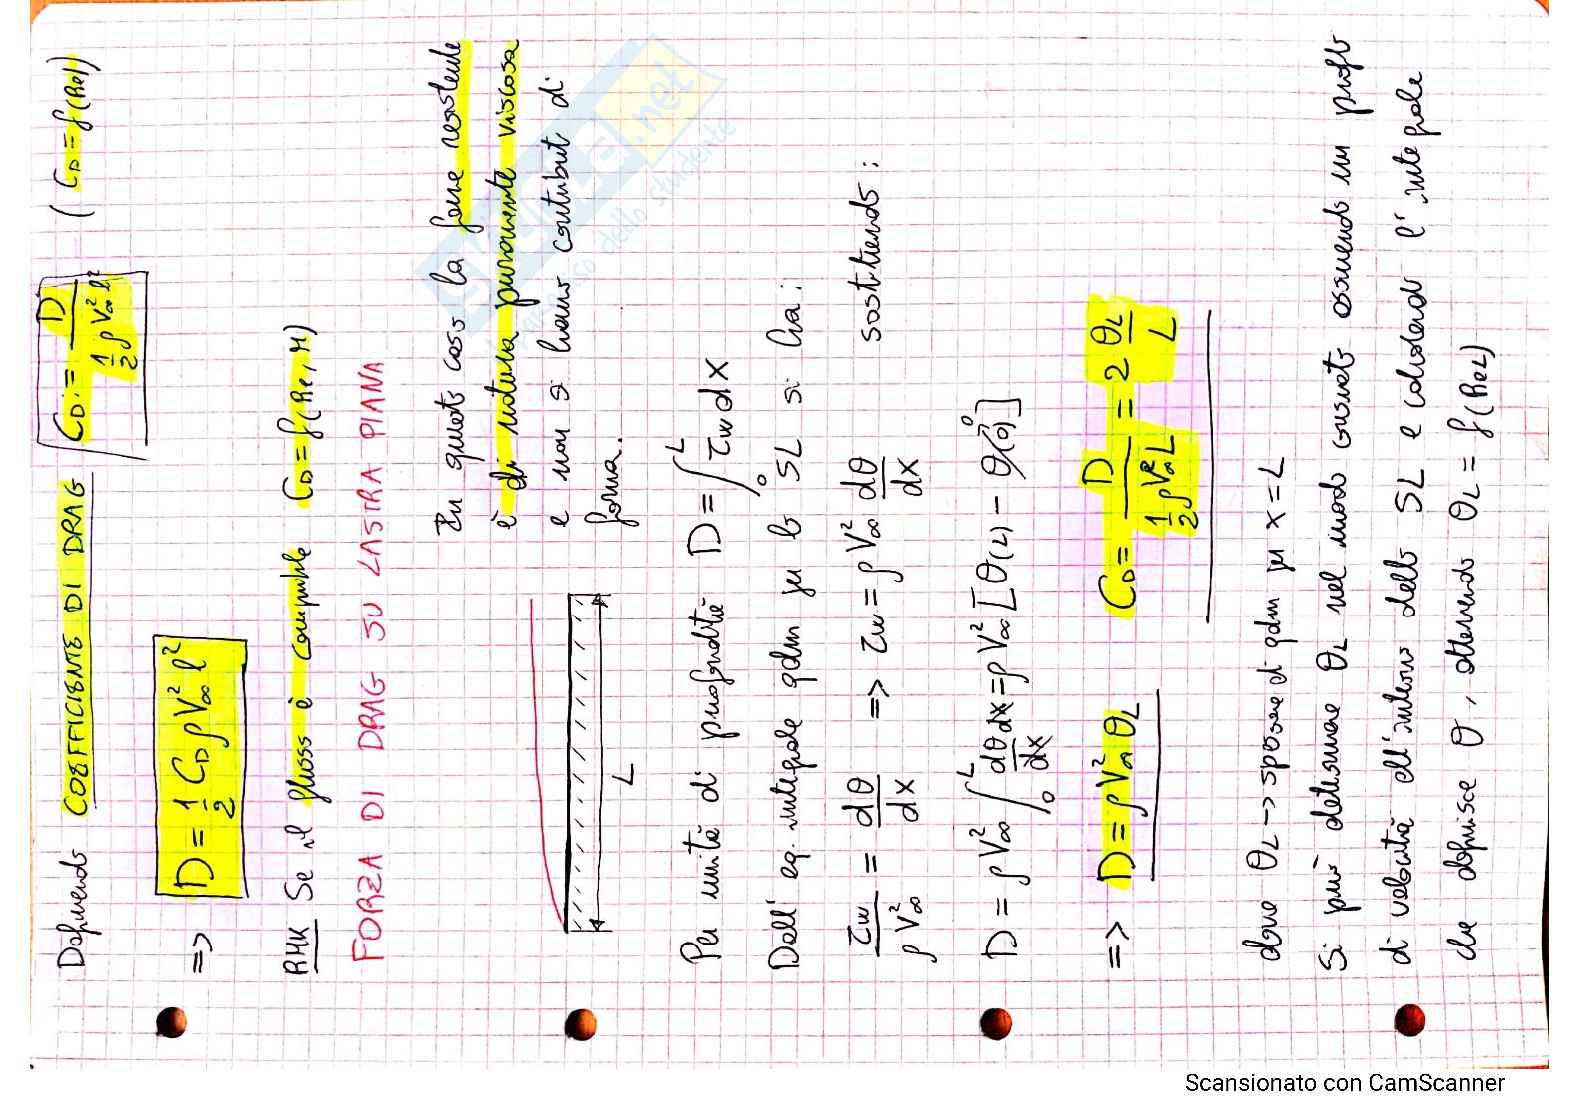 Definendo COEFFICIENTE DI DRAG CD := D / (1/2 ρ V∞² l²) (CD = f(Re))
=> D = 1/2 CD ρ V∞² l²
RMK Se il flusso è comprimibile CD = f(Re, M)
FORZA DI DRAG SU LASTRA PIANA
In questo caso la forza resistente
è di natura puramente viscosa
e non si hanno contributi di
forma.
L
Per unità di profondità D = ∫₀ᴸ τw dx
Dall' eq. integrale qdm per lo SL si ha:
τw / ρ V∞² = dθ/dx => τw = ρ V∞² dθ/dx sostituendo:
D = ρ V∞² ∫₀ᴸ dθ/dx dx = ρ V∞² [θ(L) - θ(0)] 0
=> D = ρ V∞² θL CD = D / (1/2 ρ V∞² L) = 2 θL/L
dove θL -> spessore di qdm per x = L
Si può determinare θL nel modo consueto assumendo un profilo
di velocità all'interno dello SL e calcolando l'integrale
che definisce θ, ottenendo θL = f(ReL)
SKUOLA.net
Scansionato con CamScanner